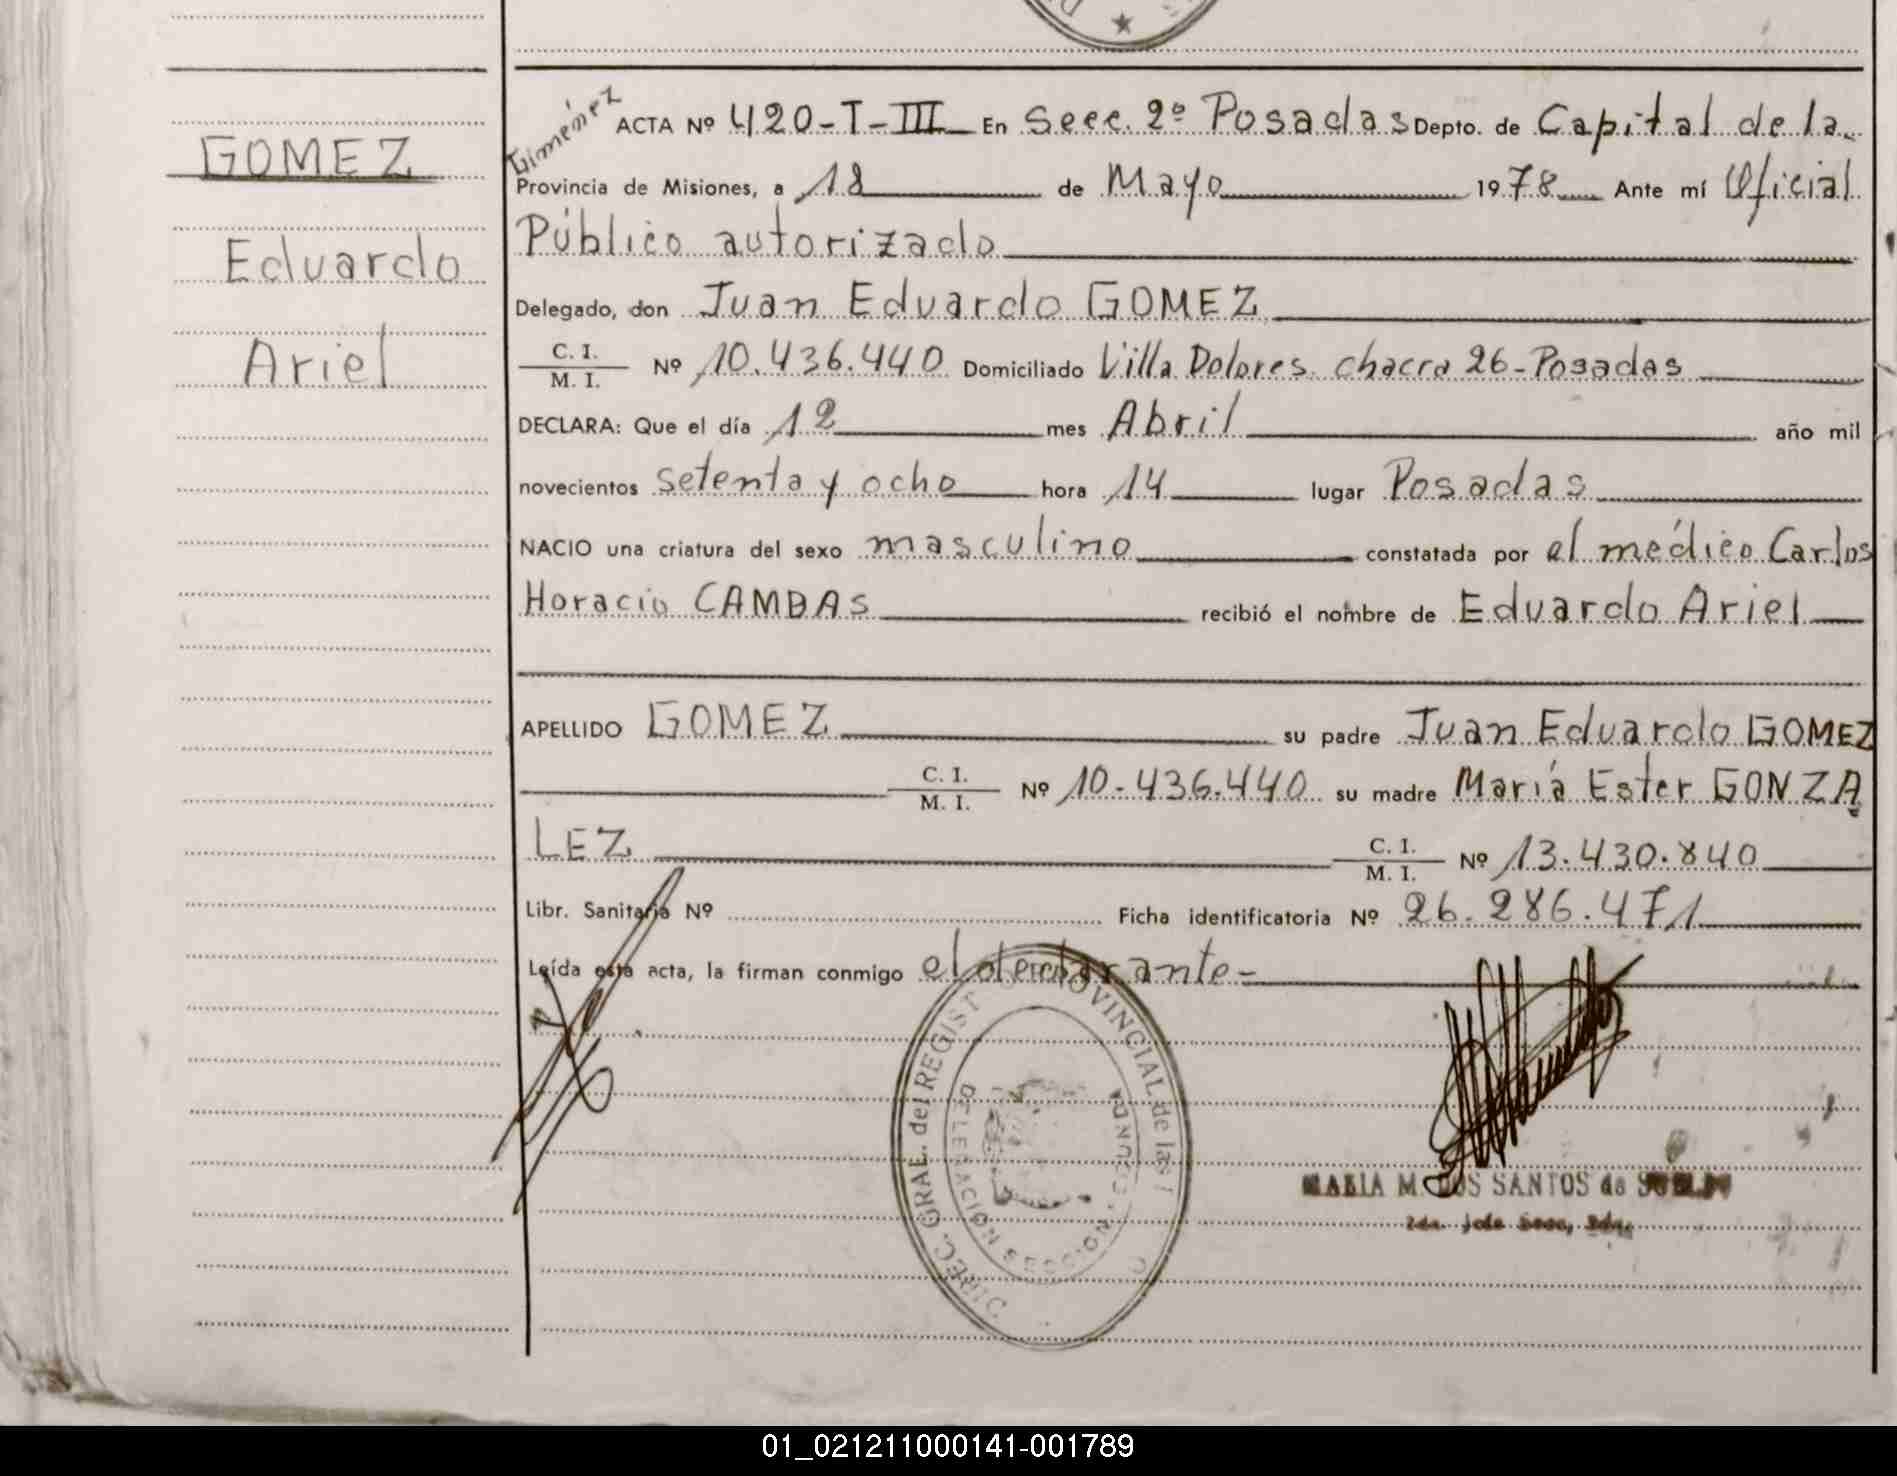 GOMEZ
Eduardo
Ariel
Giménez
ACTA Nº 420-T-III En Secc. 2º Posadas Depto. de Capital de la
Provincia de Misiones, a 18 de Mayo 1978 Ante mí Oficial
Público autorizado
Delegado, don Juan Eduardo GOMEZ
C. I.
M. I. Nº 10.436.440 Domiciliado Villa Dolores. chacra 26-Posadas
DECLARA: Que el día 12 mes Abril año mil
novecientos setenta y ocho hora 14 lugar Posadas
NACIO una criatura del sexo masculino constatada por el médico Carlos
Horacio CAMBAS recibió el nombre de Eduardo Ariel
APELLIDO GOMEZ su padre Juan Eduardo GOMEZ
C. I.
M. I. Nº 10.436.440 su madre María Ester GONZA
LEZ C. I.
M. I. Nº 13.430.840
Libr. Sanitaria Nº Ficha identificatoria Nº 26.286.471
Leída esta acta, la firman conmigo el declarante-
DIREC. GRAL. del REGIST PROVINCIAL de las
DELEGACION SECCION SEGUNDA
MARIA M. DOS SANTOS de
01_021211000141-001789